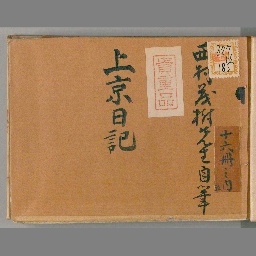 西村茂樹先生自筆
十六冊之内
貴重品
上京日記